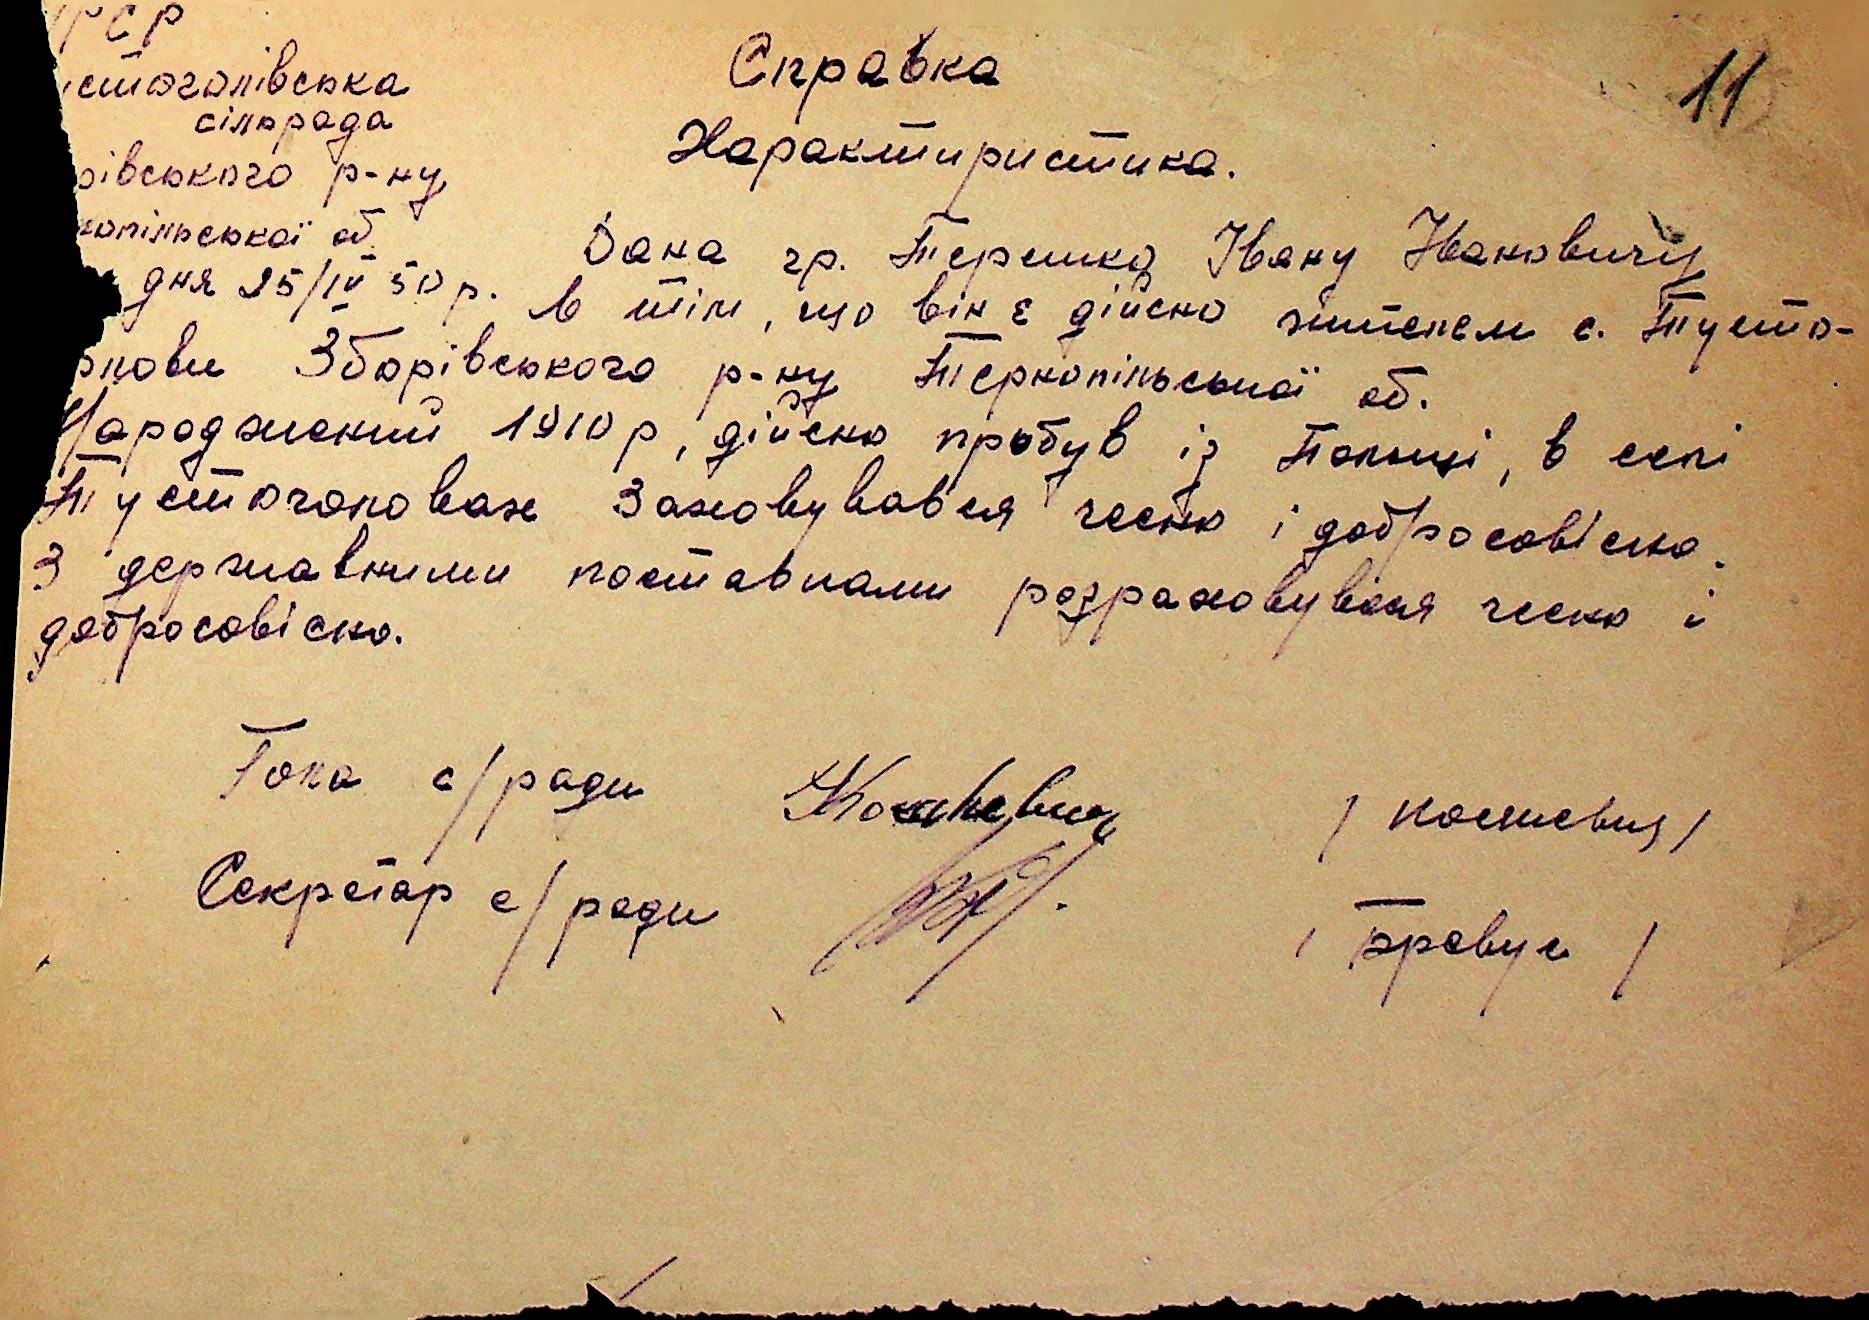 РСР
устоголівська
сільрада
рівського р-ну
нопільської об.
дня 25/IV 50 р.
Справка
Характиристика.
11
Дана гр. Терешко Івану Івановичу
в тім, що він є дійсно жителем с. Густо-
олови Зборівського р-ну Тернопільської об.
Народжений 1910 р, дійсно прибув із Польщі, в селі
Густоголовах заховувався чесно і добросовісно.
З державними поставками розраховувався чесно і
добросовісно.
Голва с/ради
Секретар с/ради